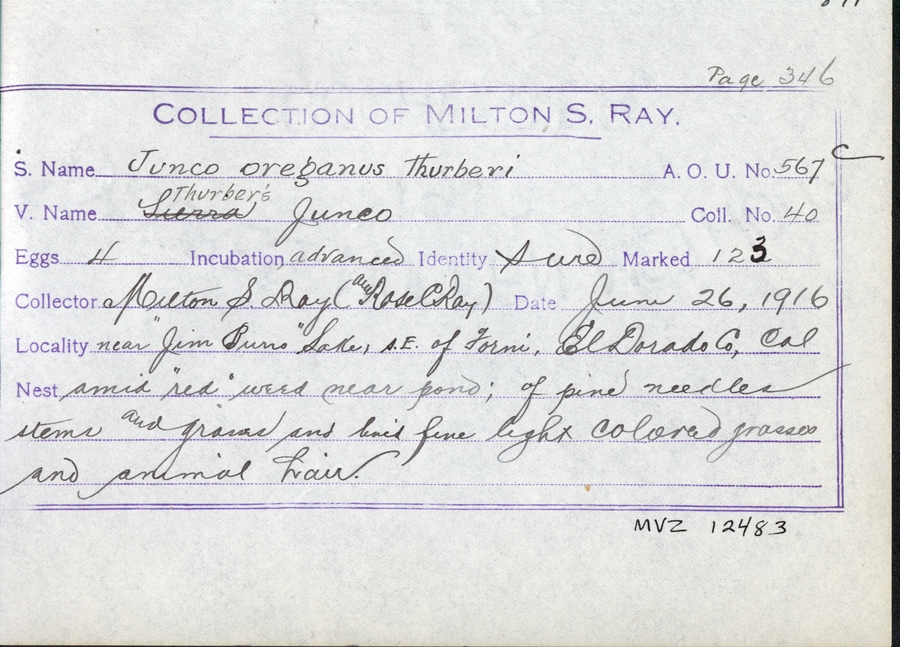 Page 346
COLLECTION OF MILTON S. RAY.
S. Name Junco oreganus Thurberi A. O. U. No. 567 c
Thurber's
V. Name Sierra Junco Coll. No. 40
Eggs 4 Incubation advanced Identity Sure Marked 123
Collector Milton S. Ray (and Rose C Ray) Date June 26, 1916
Locality near "Jim Burns" Lake, S.E. of Forni, El Dorado Co, Cal
Nest amid "red" weed near pond; of pine needles
stems and grasses and fine light colored grasses
and animal hair.
MVZ 12483